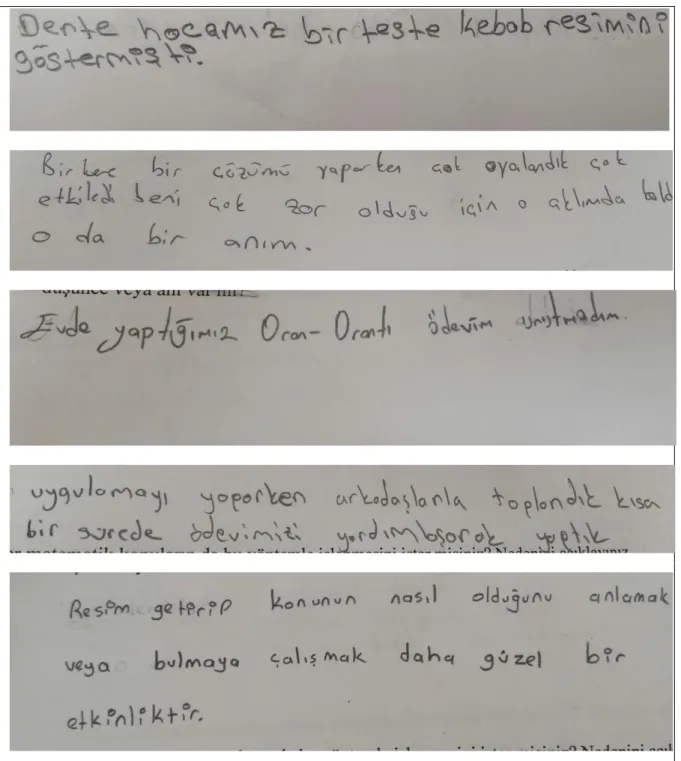 Dente hocamız bir teste kebab resimini
göstermişti.
Bir kere bir çözümü yaparken çok oyalandık çok
etkiledi beni çok zor olduğu için o aklımda kald
o da bir anım.
düşünce veya anı var mı?
Evde yaptığımız Oran-Orantı ödevim unutmadım.
uygulamayı yaparken arkadaşlarla toplandık kısa
bir sürede ödevimizi yardımlaşarak yaptık
matematik konularını da bu yöntemle işlenmesini ister misiniz? Nedenini açıklayınız
Resim getirip konunun nasıl olduğunu anlamak
veya bulmaya çalışmak daha güzel bir
etkinliktir.